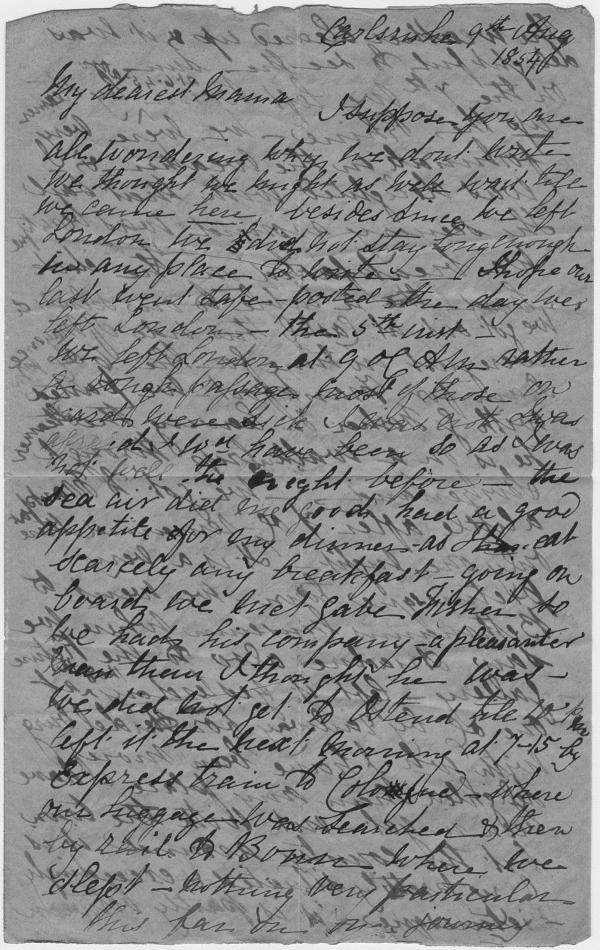 Carlsruhe 9th Aug
1854
My dearest Mama
I suppose you are
all wondering why we dont write
We thought we might as well wait till
we came here, besides since we left
London we did not stay long enough
in any place to write – I hope our
last went safe – posted the day we
left London – the 5th inst –
We left London at 9 oC Am rather
a rough passage most of those on
board were sick I was not I was
afraid I wd have been so as I was
not well the night before – the
sea air did me good had a good
appetite for my dinner as I eat
scarcely any breakfast – going on
board we met Gabe Fisher so
we had his company – a pleasanter
man than I thought he was –
We did not get to Ostend till 10 pm
left it the next morning at 7-15 by
Express train to Cologne – where
our luggage was searched & then
by rail to Bonn where we
slept – nothing very particular
this far on our journey –